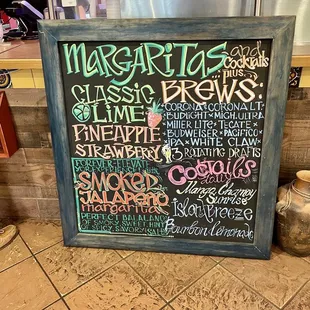 MARGARITAS
and
COCKTAILS
plus
CLASSIC
LIME
PINEAPPLE
STRAWBERRY
BREWS:
CORONA · CORONA LT
BUDLIGHT · MICH. ULTRA
MILLER LITE · TECATE
BUDWEISER · PACIFICO
IPA · WHITE CLAW
3 ROTATING DRAFTS
FOREVER · ELEVATE
SMOKED
JALAPEÑO
margarita
PERFECT BALANCE
OF SMOKY, SWEET, HINT
OF SPICY, SAVORY
Cocktails
Mango Chamoy
Sunrise
Island Breeze
Bourbon Lemonade